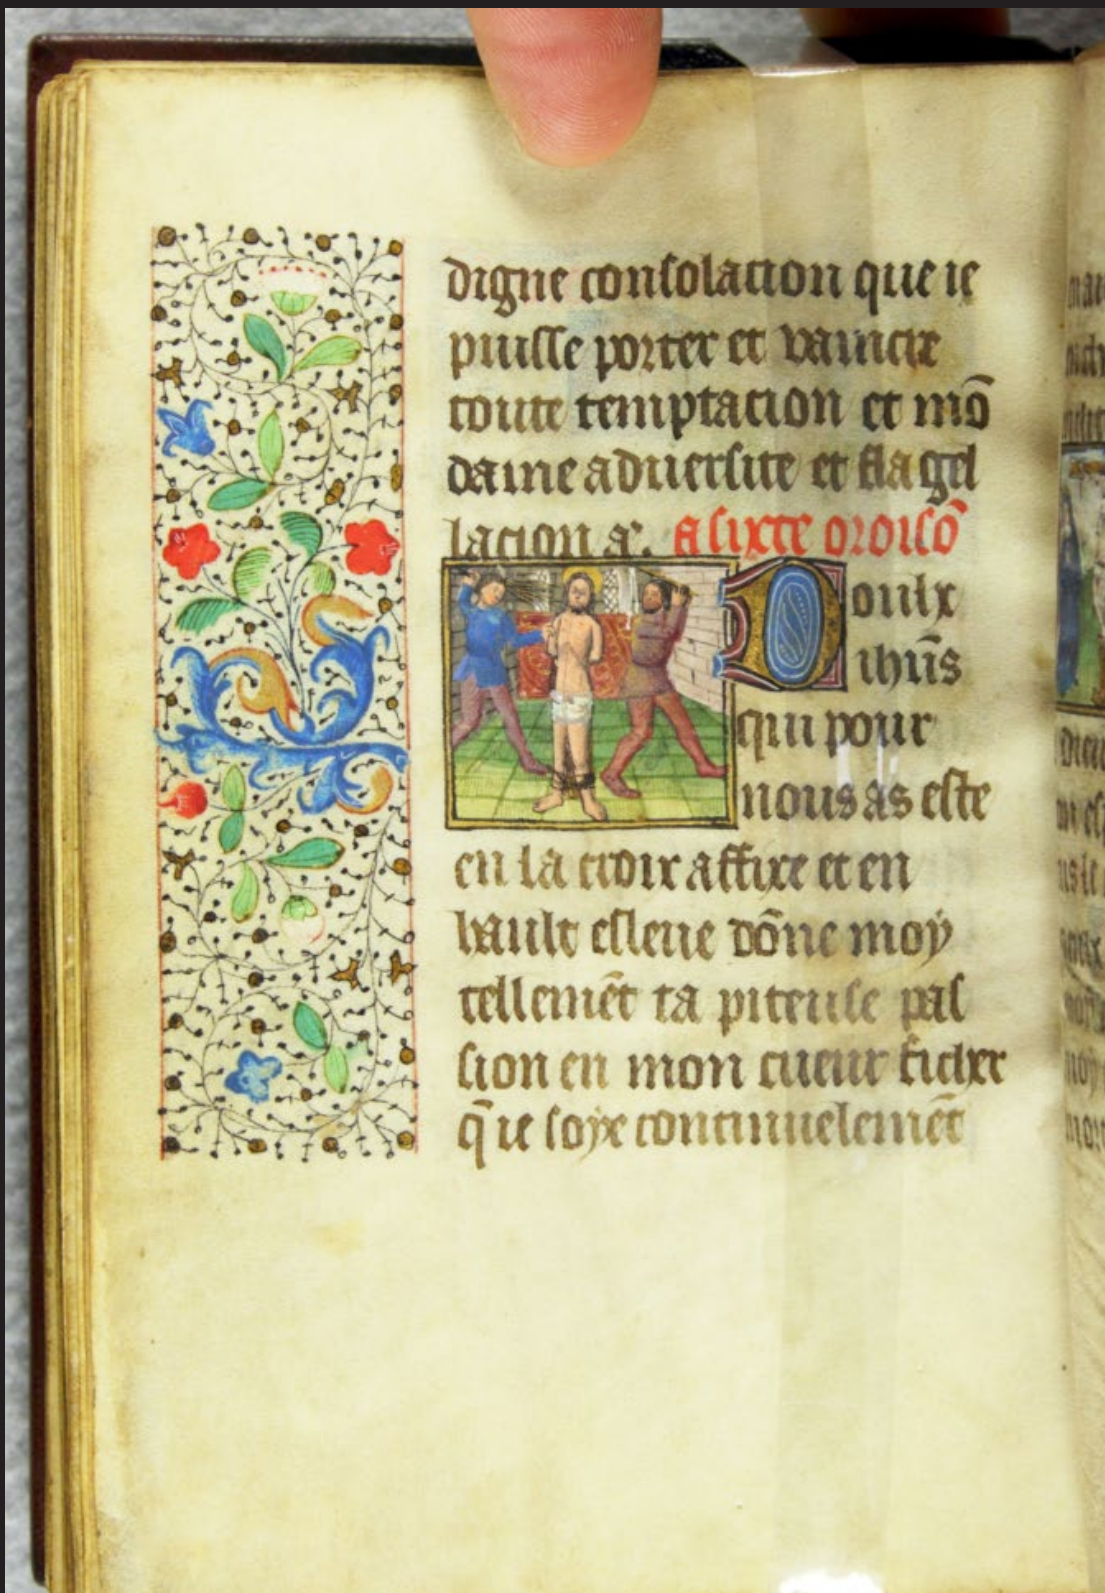 digne consolacion que ie
puisse porter et vaincre
toute temptacion et mō
daine aduersite et flagel
lacion aͫ. A sixte oroisō
Doulx
ihūs
qui pour
nous as este
en la croix affixe et en
hault esleue dōne moy
tellemēt ta piteuse pas
sion en mon cueur ficher
q̄ ie soye continuelemēt